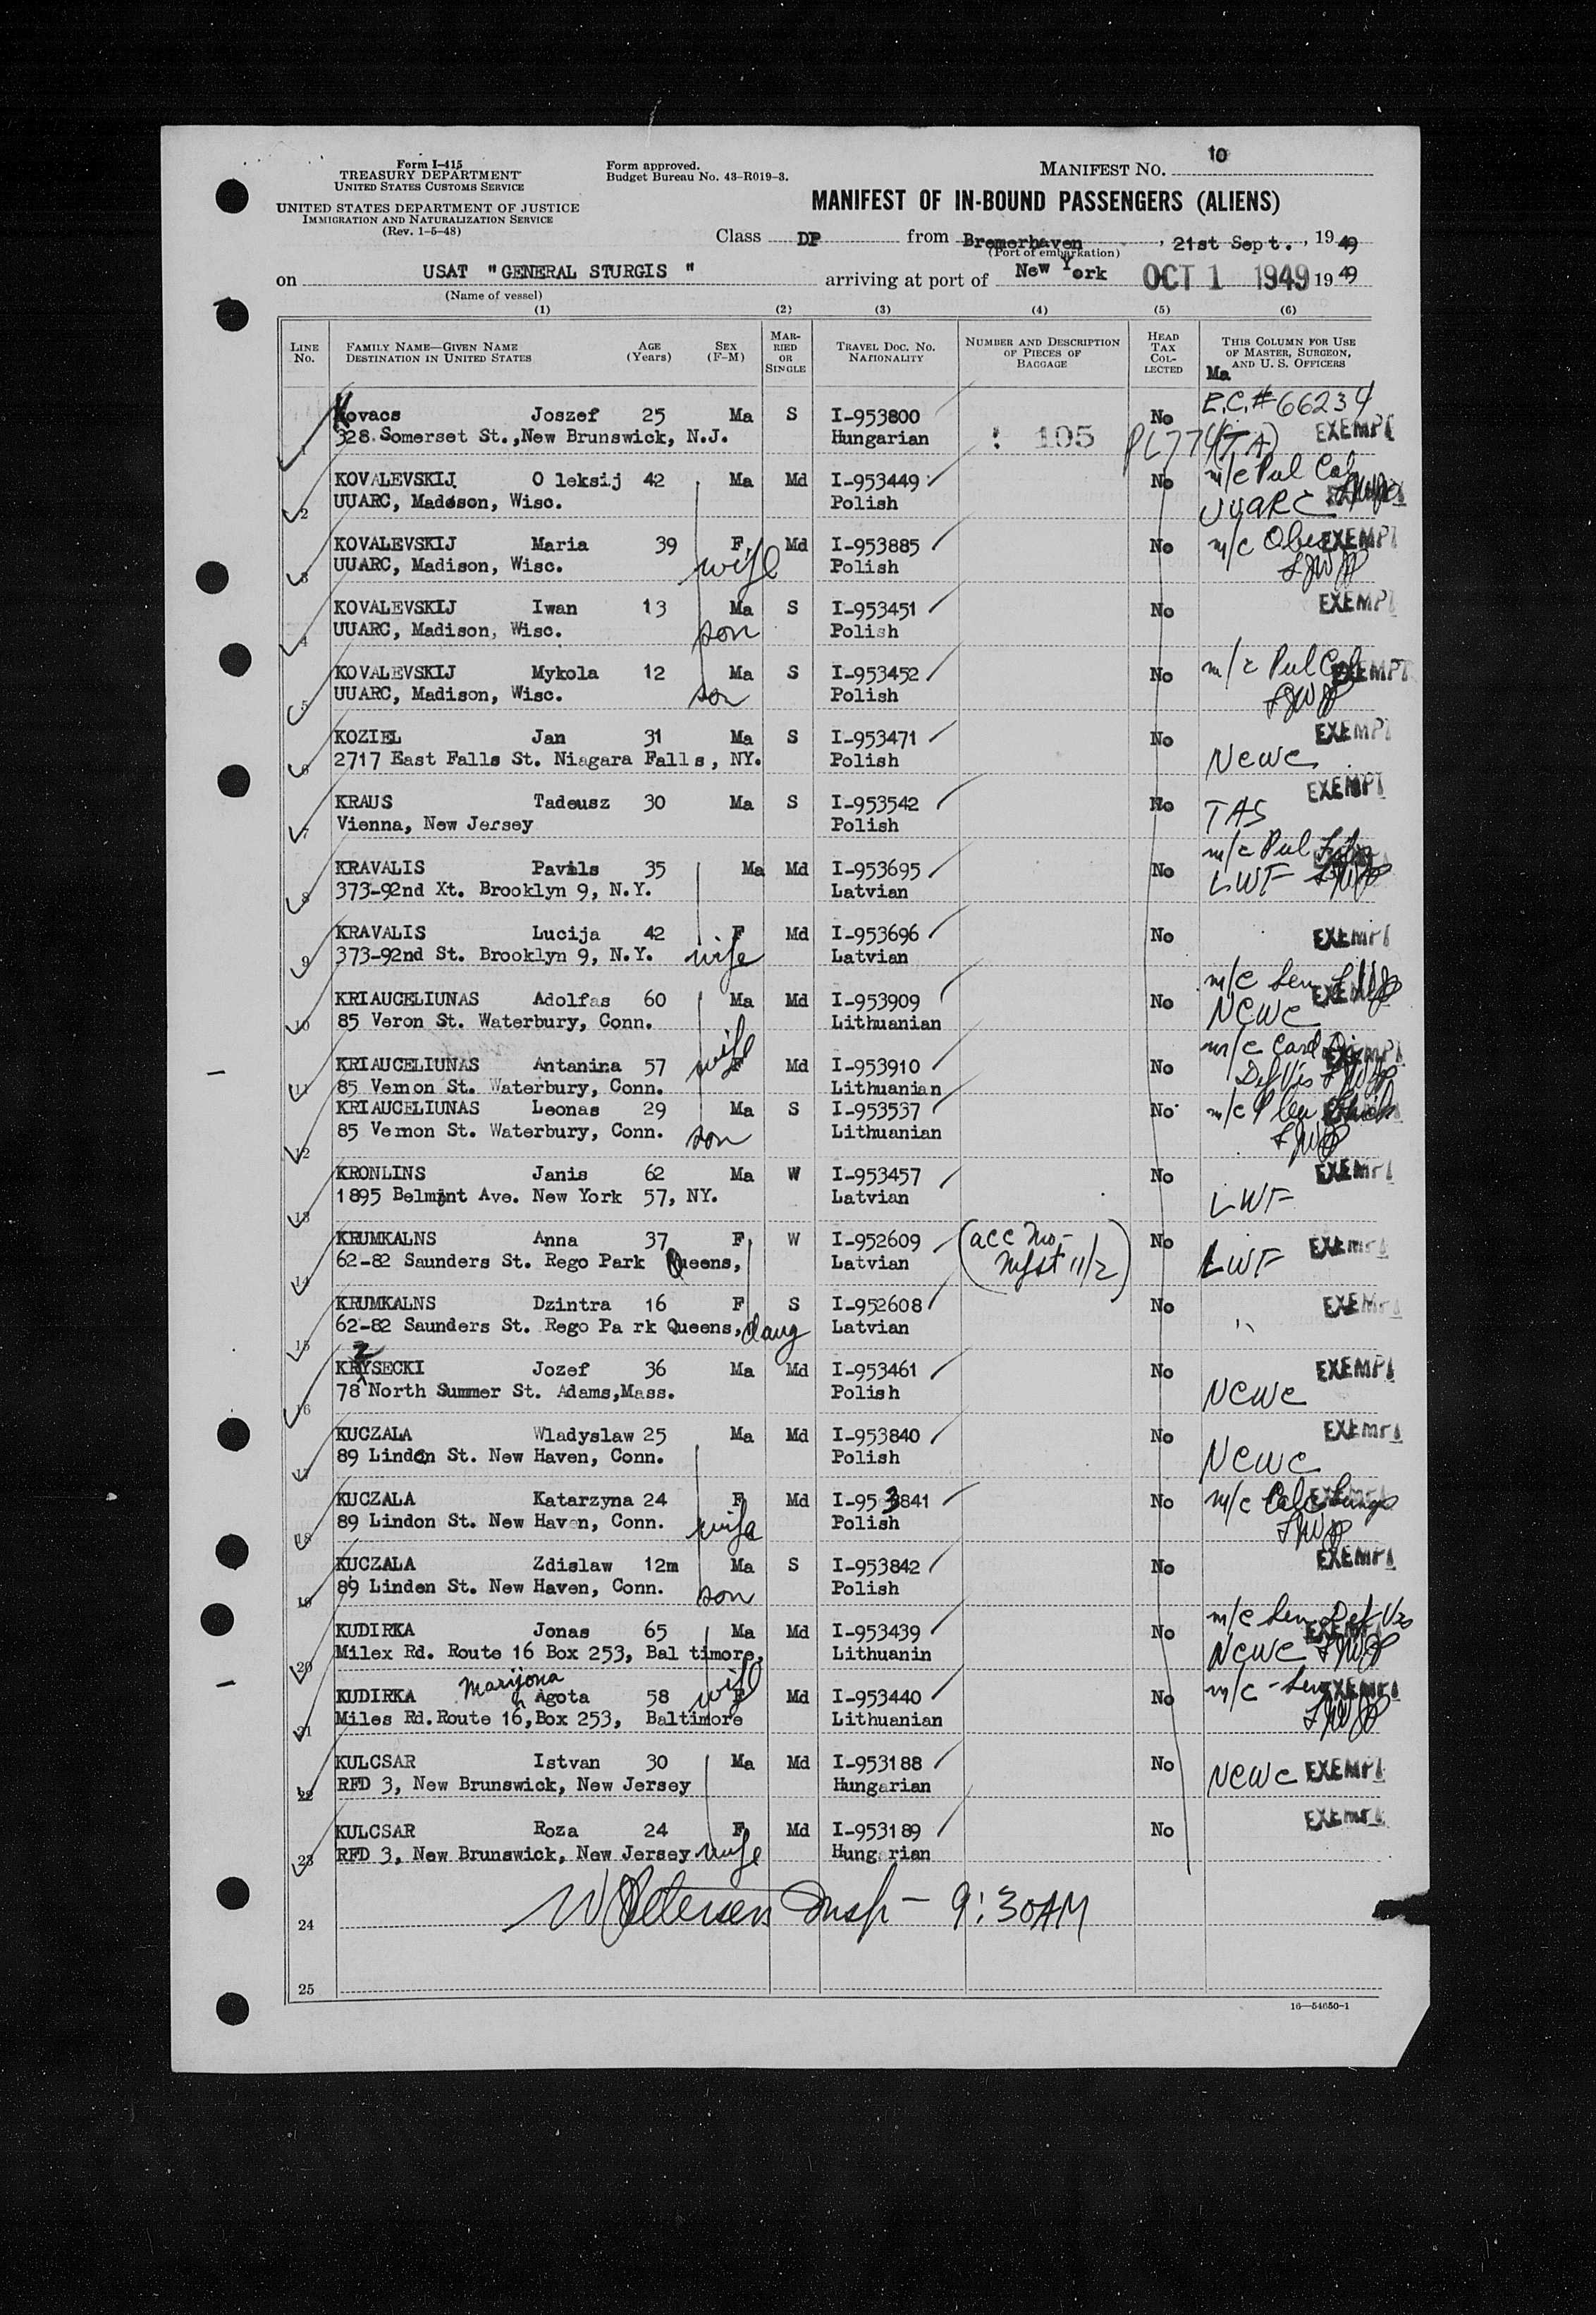 Form I-415
TREASURY DEPARTMENT
UNITED STATES CUSTOMS SERVICE
UNITED STATES DEPARTMENT OF JUSTICE
IMMIGRATION AND NATURALIZATION SERVICE
(Rev. 1-5-48)
Form approved.
Budget Bureau No. 43-R019-3.
MANIFEST NO. 10
MANIFEST OF IN-BOUND PASSENGERS (ALIENS)
Class DP from Bremerhaven, 21st Sept., 1949
(Port of embarkation)
on USAT "GENERAL STURGIS" arriving at port of New York OCT 1 1949 1949
(Name of vessel)
(1) (2) (3) (4) (5) (6)
LINE NO. FAMILY NAME—GIVEN NAME DESTINATION IN UNITED STATES AGE (Years) SEX (F-M) MARRIED OR SINGLE TRAVEL DOC. NO. NATIONALITY NUMBER AND DESCRIPTION OF PIECES OF BAGGAGE HEAD TAX COLLECTED THIS COLUMN FOR USE OF MASTER, SURGEON, AND U. S. OFFICERS
Ma
1 Kovacs Joszef 25 Ma S I-953800 No E.C.# 66234
328 Somerset St.,New Brunswick, N.J. Hungarian 105 PL774(TA) EXEMPT
2 KOVALEVSKIJ O leksij 42 Ma Md I-953449 No m/c Pul Cal
UUARC, Madison, Wisc. Polish UUARC
3 KOVALEVSKIJ Maria 39 F Md I-953885 No m/c EXEMPT
UUARC, Madison, Wisc. wife Polish
4 KOVALEVSKIJ Iwan 13 Ma S I-953451 No EXEMPT
UUARC, Madison, Wisc. son Polish
5 KOVALEVSKIJ Mykola 12 Ma S I-953452 No m/c Pul Cal EXEMPT
UUARC, Madison, Wisc. son Polish
6 KOZIEL Jan 31 Ma S I-953471 No EXEMPT
2717 East Falls St. Niagara Falls, NY. Polish NCWC
7 KRAUS Tadeusz 30 Ma S I-953542 No EXEMPT
Vienna, New Jersey Polish TAS
8 KRAVALIS Pavils 35 Ma Md I-953695 No m/c Pul
373-92nd Xt. Brooklyn 9, N.Y. Latvian LWF
9 KRAVALIS Lucija 42 F Md I-953696 No EXEMPT
373-92nd St. Brooklyn 9, N.Y. wife Latvian
10 KRIAUCELIUNAS Adolfas 60 Ma Md I-953909 No m/c Sen EXEMPT
85 Veron St. Waterbury, Conn. Lithuanian NCWC
11 KRIAUCELIUNAS Antanina 57 F wife Md I-953910 No m/c Card EXEMPT
85 Vernon St. Waterbury, Conn. Lithuanian Def Vis
12 KRIAUCELIUNAS Leonas 29 Ma S I-953537 No m/c
85 Vernon St. Waterbury, Conn. son Lithuanian
13 KRONLINS Janis 62 Ma W I-953457 No EXEMPT
1895 Belmont Ave. New York 57, NY. Latvian LWF
14 KRUMKALNS Anna 37 F W I-952609 (acc No No EXEMPT
62-82 Saunders St. Rego Park Queens, Latvian Mfst 11/2) LWF
15 KRUMKALNS Dzintra 16 F S I-952608 No EXEMPT
62-82 Saunders St. Rego Pa rk Queens, daug Latvian "
16 KRZYSECKI Jozef 36 Ma Md I-953461 No EXEMPT
78 North Summer St. Adams,Mass. Polish NCWC
17 KUCZALA Wladyslaw 25 Ma Md I-953840 No EXEMPT
89 Linden St. New Haven, Conn. Polish NCWC
18 KUCZALA Katarzyna 24 F Md I-953841 No m/c
89 Lindon St. New Haven, Conn. wife Polish
19 KUCZALA Zdislaw 12m Ma S I-953842 No EXEMPT
89 Linden St. New Haven, Conn. son Polish
20 KUDIRKA Jonas 65 Ma Md I-953439 No m/c Sen Def Vis EXEMPT
Milex Rd. Route 16 Box 253, Bal timore, Lithuanin NCWC
21 KUDIRKA Marijona Agota 58 F wife Md I-953440 No m/c - Sen EXEMPT
Miles Rd.Route 16,Box 253, Baltimore Lithuanian
22 KULCSAR Istvan 30 Ma Md I-953188 No NCWC EXEMPT
RFD 3, New Brunswick, New Jersey Hungarian
23 KULCSAR Roza 24 F Md I-953189 No EXEMPT
RFD 3, New Brunswick, New Jersey wife Hungarian
24 W Petersen Insp - 9:30AM
25
16-54650-1